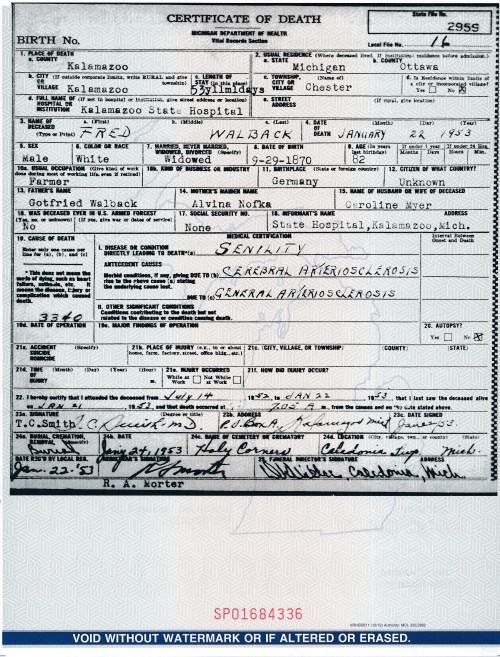 CERTIFICATE OF DEATH
State File No.
2959
MICHIGAN DEPARTMENT OF HEALTH
Vital Records Section
BIRTH No.
Local File No. 16
1. PLACE OF DEATH
a. COUNTY
Kalamazoo
2. USUAL RESIDENCE (Where deceased lived. If institution: residence before admission.)
a. STATE
Michigan
b. COUNTY
Ottawa
b. CITY (If outside corporate limits, write RURAL and give township)
OR
VILLAGE Kalamazoo
c. LENGTH OF STAY (in this place)
c. TOWNSHIP, CITY OR VILLAGE (Name of)
Chester
d. Is Residence within limits of a city or incorporated village?
Yes No
d. FULL NAME OF (If not in hospital or institution, give street address or location)
HOSPITAL OR
INSTITUTION Kalamazoo State Hospital
e. STREET ADDRESS (If rural, give location)
3. NAME OF DECEASED
(Type or Print)
a. (First)
FRED
b. (Middle)
c. (Last)
WALBACK
4. DATE OF DEATH
(Month) (Day) (Year)
JANUARY 22 1953
5. SEX
Male
6. COLOR OR RACE
White
7. MARRIED, NEVER MARRIED, WIDOWED, DIVORCED (Specify)
Widowed
8. DATE OF BIRTH
9-29-1870
9. AGE (In years last birthday)
82
If under 1 year
Months Days
If under 24 Hrs.
Hours Min.
10a. USUAL OCCUPATION (Give kind of work done during most of working life, even if retired)
Farmer
10b. KIND OF BUSINESS OR INDUSTRY
11. BIRTHPLACE (State or foreign country)
Germany
12. CITIZEN OF WHAT COUNTRY?
Unknown
13. FATHER'S NAME
Gotfried Walback
14. MOTHER'S MAIDEN NAME
Alvina Nofka
15. NAME OF HUSBAND OR WIFE OF DECEASED
Caroline Myer
16. WAS DECEASED EVER IN U.S. ARMED FORCES?
(Yes, no, or unknown) (If yes, give war or dates of service)
No
17. SOCIAL SECURITY NO.
None
18. INFORMANT'S NAME ADDRESS
State Hospital, Kalamazoo, Mich.
19. CAUSE OF DEATH
Enter only one cause per line for (a), (b), and (c)
MEDICAL CERTIFICATION
Interval Between Onset and Death
I. DISEASE OR CONDITION
DIRECTLY LEADING TO DEATH*(a) SENILITY
ANTECEDENT CAUSES
* This does not mean the mode of dying, such as heart failure, asthenia, etc. It means the disease, injury or complication which caused death.
Morbid conditions, if any, giving rise to the above cause (a) stating the underlying cause last.
DUE TO (b) CEREBRAL ARTERIOSCLEROSIS
DUE TO (c) GENERAL ARTERIOSCLEROSIS
3340
II. OTHER SIGNIFICANT CONDITIONS
Conditions contributing to the death but not related to the disease or condition causing death.
19d. DATE OF OPERATION
19e. MAJOR FINDINGS OF OPERATION
20. AUTOPSY?
Yes No
21a. ACCIDENT SUICIDE HOMICIDE (Specify)
21b. PLACE OF INJURY (e.g., in or about home, farm, factory, street, office bldg., etc.)
21c. (CITY, VILLAGE, OR TOWNSHIP) (COUNTY) (STATE)
21d. TIME OF INJURY (Month) (Day) (Year) (Hour) m.
21e. INJURY OCCURRED
While at Work Not While at Work
21f. HOW DID INJURY OCCUR?
22. I hereby certify that I attended the deceased from July 14 1952, to JAN 22 1953, that I last saw the deceased alive
on JAN 21 1953, and that death occurred at 7:05 A m., from the causes and on the date stated above.
23a. SIGNATURE (Degree or title)
T.C. Smith
M.D
23b. ADDRESS
P.O. Box A, Kalamazoo Mich
23c. DATE SIGNED
Jan 22 '53
24a. BURIAL, CREMATION, REMOVAL (Specify)
Burial
24b. DATE
Jan 24, 1953
24c. NAME OF CEMETERY OR CREMATORY
Holy Corners
24d. LOCATION (City, village, twp., or county) (State)
Caledonia Twp. Mich.
DATE REC'D BY LOCAL REG.
Jan. 22 '53
REGISTRAR'S SIGNATURE
R A Morter
25. FUNERAL DIRECTOR'S SIGNATURE ADDRESS
Caledonia, Mich
R. A. Morter
SP01684336
VOID WITHOUT WATERMARK OR IF ALTERED OR ERASED.